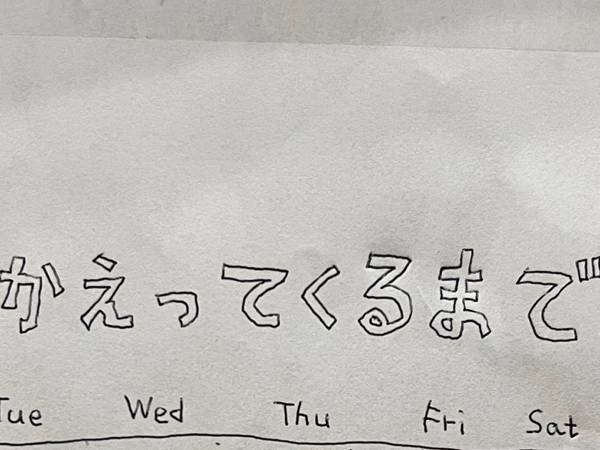 かえってくるまで
Tue Wed Thu Fri Sat